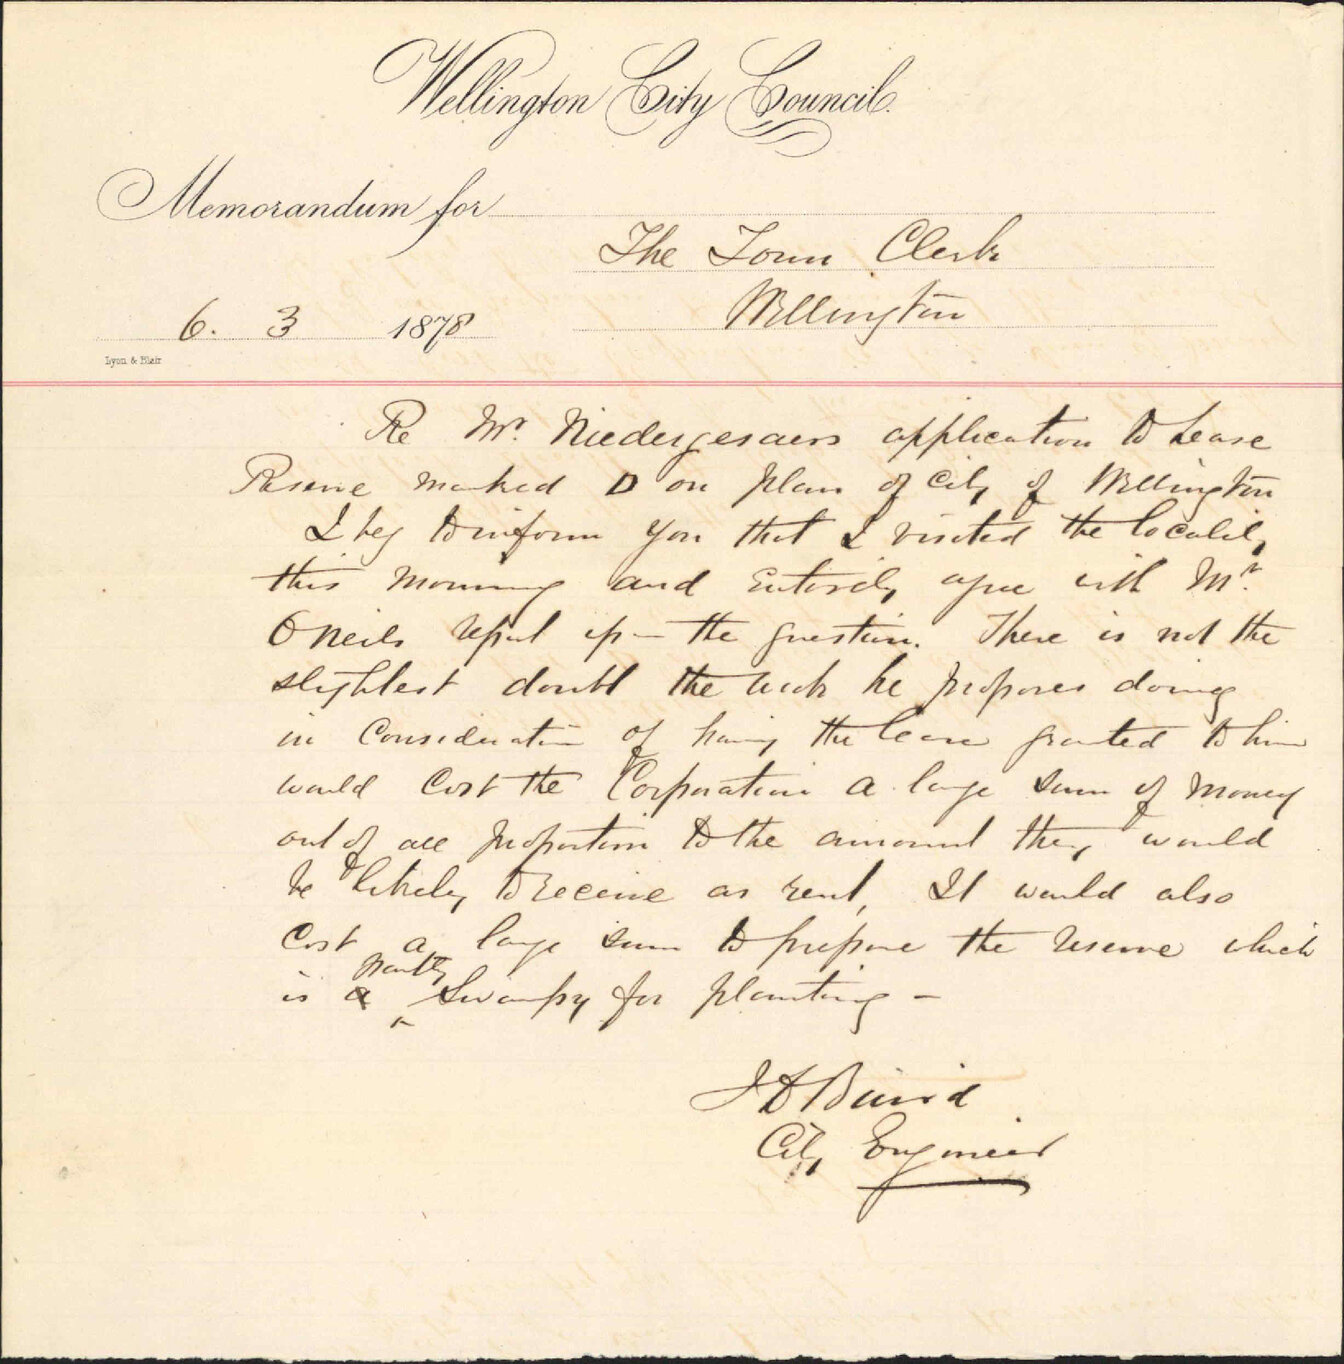 Wellington City Council.
Memorandum for
The Town Clerk
Wellington
6. 3 1878
Lyon & Blair
Re Mr. Niedergesaers application to Lease
Reserve marked D on plan of City of Wellington
I beg to inform you that I visited the locality
this morning and Entirely agree with Mr.
O'Neils report upon the question. There is not the
slightest doubt the work he proposes doing
in Consideration of having the lease granted to him
would Cost the Corporation a large sum of money
out of all proportion to the amount they would
be likely to receive as rent, It would also
Cost a large sum to prepare the reserve which
partly
is a Swampy for planting -
J D Baird
City Engineer